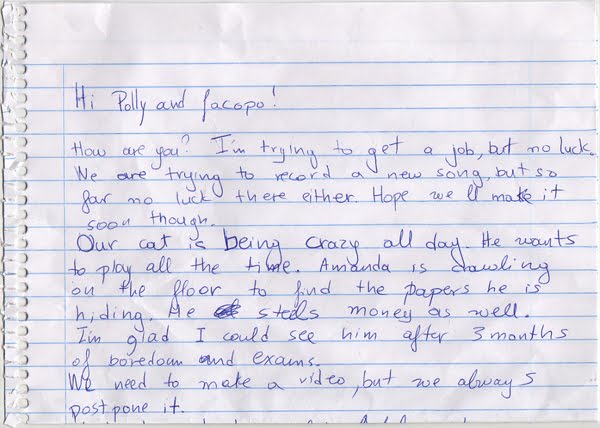 Hi Polly and Jacopo!
How are you? I'm trying to get a job, but no luck.
We are trying to record a new song, but so
far no luck there either. Hope we'll make it
soon though.
Our cat is being crazy all day. He wants
to play all the time. Amanda is crawling
on the floor to find the papers he is
hiding. He steels money as well.
I'm glad I could see him after 3 months
of boredom and exams.
We need to make a video, but we always
postpone it.